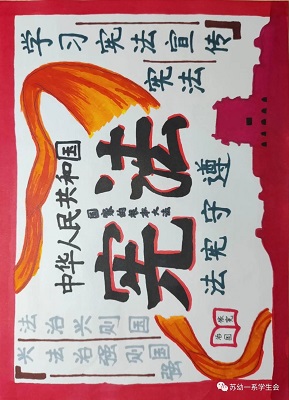 学习宪法宣传
宪法
中华人民共和国
宪法
国家的根本大法
遵守宪法
法治兴则国
兴法治强则国强
苏幼一系学生会